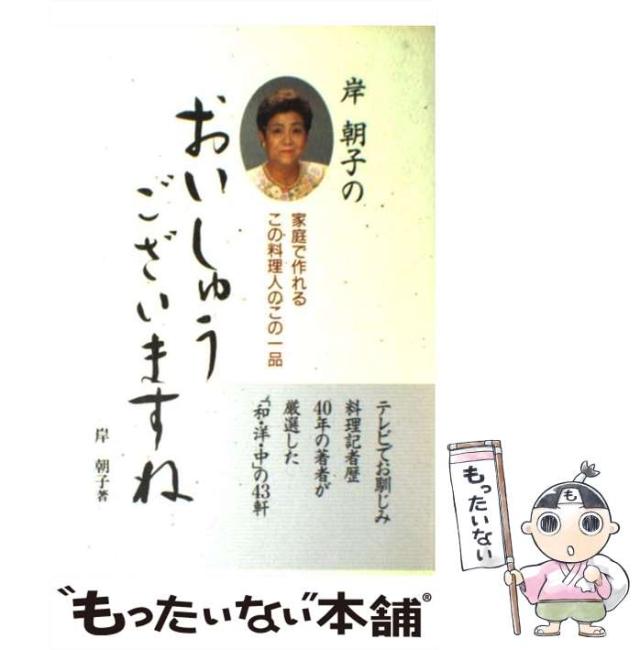 岸 朝子の
おいしゅう
ございますね
家庭で作れる
この料理人のこの一品
岸 朝子著
テレビでお馴じみ
料理記者歴
40年の著者が
厳選した
「和・洋・中」の43軒
も
もったいない
"もったいない"本舗®